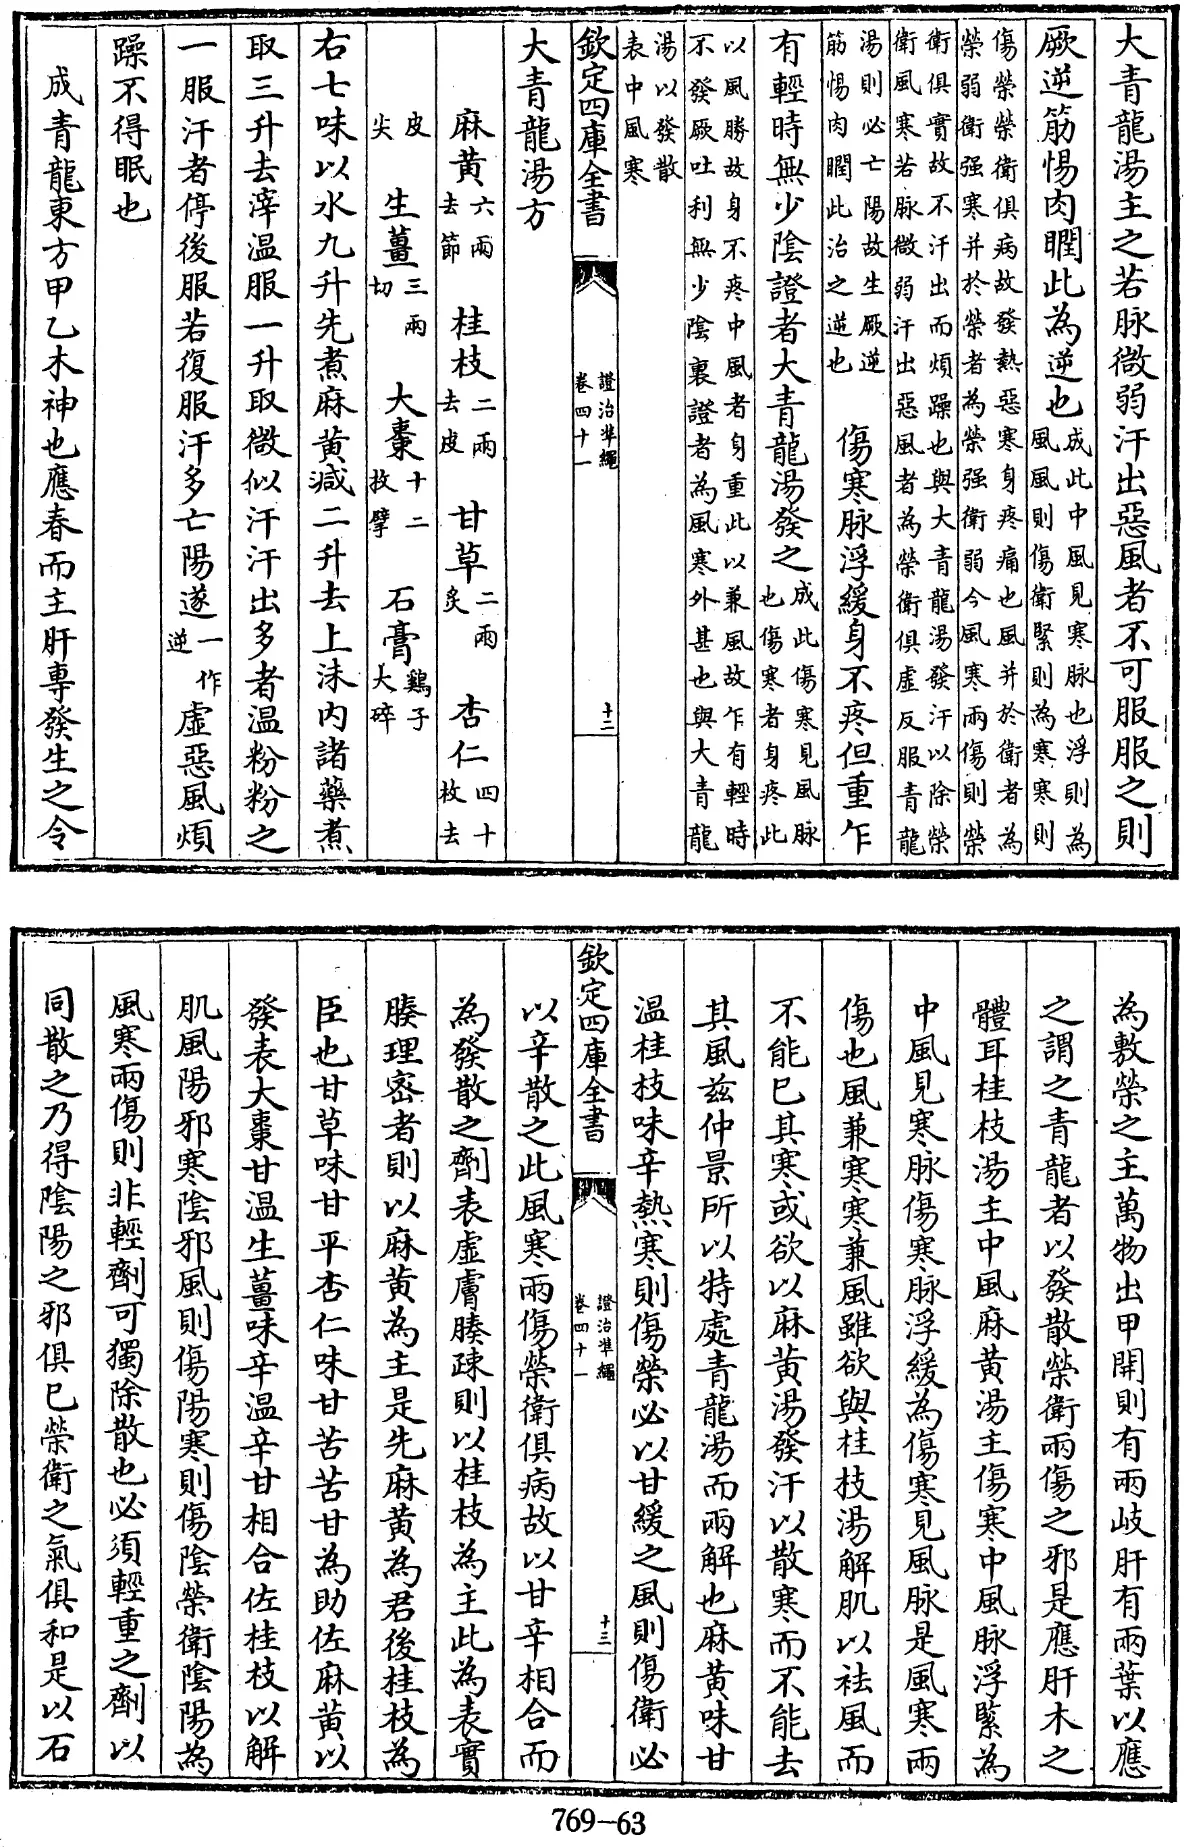 大青龍湯主之若脉微弱汗出惡風者不可服服之則
厥逆筋惕肉瞤此為逆也成此中風見寒脉也浮則為
風風則傷衛緊則為寒寒則
傷榮榮衛俱病故發熱惡寒身疼痛也風并於衛者為
榮弱衛强寒并於榮者為榮强衛弱今風寒兩傷則榮
衛俱實故不汗出而煩躁也與大青龍湯發汗以除榮
衛風寒若脉微弱汗出惡風者為榮衛俱虛反服青龍
湯則必亡陽故生厥逆
筋惕肉瞤此治之逆也 傷寒脉浮緩身不疼但重乍
有輕時無少陰證者大青龍湯發之成此傷寒見風脉
也傷寒者身疼此
以風勝故身不疼中風者身重此以兼風故乍有輕時
不發厥吐利無少陰裏證者為風寒外甚也與大青龍
湯以發散
表中風寒
欽定四庫全書
證治準繩
卷四十一
十二
大青龍湯方
麻黄六兩去節 桂枝二兩去皮 甘草二兩炙 杏仁四十枚去
皮尖 生薑三兩切 大棗十二枚擘 石膏鷄子大碎
右七味以水九升先煮麻黄減二升去上沫内諸藥煮
取三升去滓温服一升取微似汗汗出多者温粉粉之
一服汗者停後服若復服汗多亡陽遂一作逆虛惡風煩
躁不得眠也
成青龍東方甲乙木神也應春而主肝專發生之令
為敷榮之主萬物出甲開則有兩岐肝有兩葉以應
之謂之青龍者以發散榮衛兩傷之邪是應肝木之
體耳桂枝湯主中風麻黄湯主傷寒中風脉浮緊為
中風見寒脉傷寒脉浮緩為傷寒見風脉是風寒兩
傷也風兼寒寒兼風雖欲與桂枝湯解肌以袪風而
不能已其寒或欲以麻黄湯發汗以散寒而不能去
其風兹仲景所以特處青龍湯而兩解也麻黄味甘
温桂枝味辛熱寒則傷榮必以甘緩之風則傷衛必
欽定四庫全書
證治準繩
卷四十一
十三
以辛散之此風寒兩傷榮衛俱病故以甘辛相合而
為發散之劑表虛膚腠疎則以桂枝為主此為表實
腠理密者則以麻黄為主是先麻黄為君後桂枝為
臣也甘草味甘平杏仁味甘苦苦甘為助佐麻黄以
發表大棗甘温生薑味辛温辛甘相合佐桂枝以解
肌風陽邪寒陰邪風則傷陽寒則傷陰榮衛陰陽為
風寒兩傷則非輕劑可獨除散也必須輕重之劑以
同散之乃得陰陽之邪俱已榮衛之氣俱和是以石
769-63